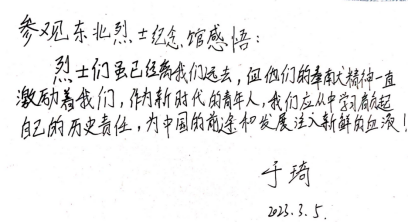 参观东北烈士纪念馆感悟：
烈士们虽已经离我们远去，但他们的奉献精神一直
激励着我们，作为新时代的青年人，我们应从中学习肩负起
自己的历史责任，为中国的前途和发展注入新鲜的血液！
于琦
2023.3.5.